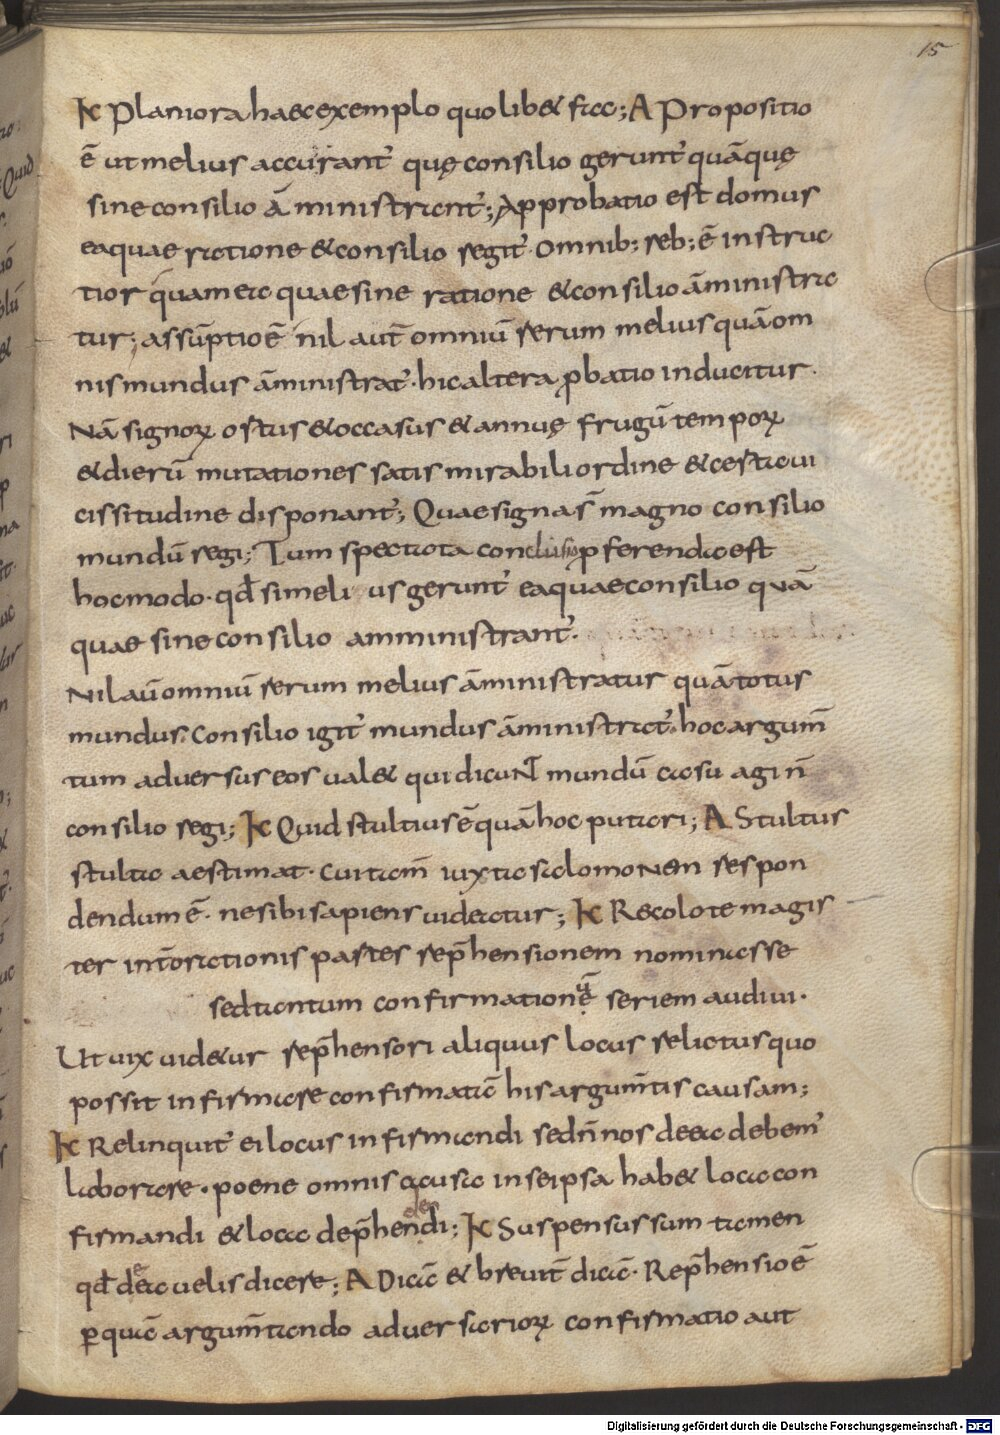 15
K Planiora haec exemplo quolib& fac; A Propositio
ē ut melius accurant̄ quę consilio gerunt̄ quā quę
sine consilio āministrant̄; Approbatio est domus
ea quae ratione & consilio regit̄ omnib; reb; ē instruc
tior quam ea quae sine ratione & consilio āministra
tur; assūptio ē nil aut̄ omniū rerum melius quā om
nis mundus āministrat̄. hic altera ꝓbatio inducitur.
Nā signoꝝ ortus & occasus & annuę frugū tempoꝝ
& dierū mutationes satis mirabili ordine & certa vi
cissitudine disponant̄; Quae signa s̄ magno consilio
mundū regi; Tum spectata conclusio p ferenda est
hoc modo. qd̄ si meli us gerunt̄ ea quae consilio quā
quae sine consilio amministrant̄.
Nil aū omniū rerum melius āministratur quā totus
mundus. Consilio igit̄ mundus āministrat̄. hoc argum̄
tum adversus eos val& qui dicuNT mundū casu agi n̄
consilio regi; K Quid stultius ē quā hoc putari; A Stultus
stulta aestimat. Cui tam̄ iuxta salomoNem respon
dendum ē. ne sibi sapiens videatur; K Recolo te magis
ter int̄ orationis partes rep̄hensionem nominasse
sed tantum confirmationē seriem audivi.
Ut vix vid&ur rep̄hensori aliquus locus relictus quo
possit infirmare confirmatā his argum̄tis causam;
K Relinquit̄ ei locus infirmandi sed n̄ nos de ea debem̄
laborare. poene omnis causa in seipsa hab& loca con
firmandi & loca dep̄hendi; K Suspensus sum tamen
qd̄ de ea velis dicere; A Dicā & brevit̄ dicā. Rep̄hensio ē
ꝑ quā argum̄tando adversarioꝝ confirmatio aut
Digitalisierung gefördert durch die Deutsche Forschungsgemeinschaft - DFG